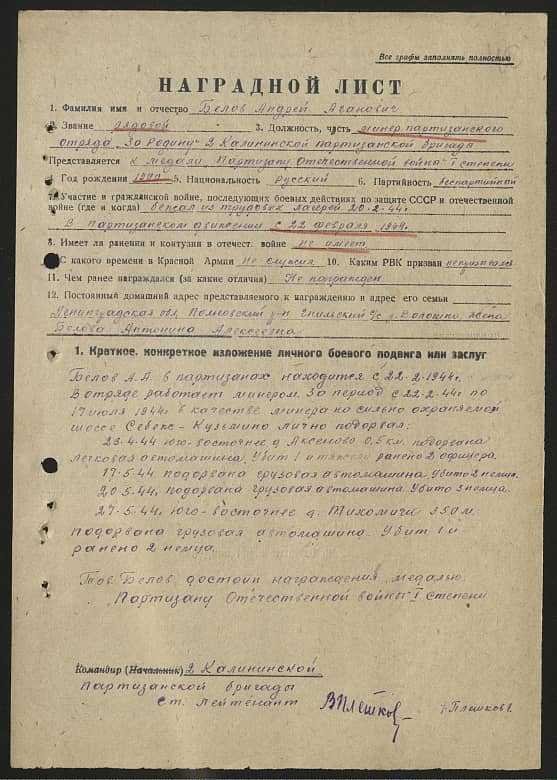 Все графы заполнять полностью
НАГРАДНОЙ ЛИСТ
1. Фамилия имя и отчество Белов Андрей Агапович
2. Звание рядовой 3. Должность, часть минер партизанского
отряда „За Родину" 2 Калининской партизанской бригады
Представляется к медали „Партизану Отечественной войны" I степени
4. Год рождения 5. Национальность русский 6. Партийность беспартийный
7. Участие в гражданской войне, последующих боевых действиях по защите СССР и отечественной
войне (где и когда) бежал из трудовых лагерей 20-2-44г.
В партизанском движении с 22 февраля 1944г.
8. Имеет ли ранения и контузии в отечест. войне не имеет
9. С какого времени в Красной Армии не служил 10. Каким РВК призван
11. Чем ранее награжден (за какие отличия) Не награжден
12. Постоянный домашний адрес представляемого к награждению и адрес его семьи
Ленинградская обл. Полновский р-н с/с д. Волошно, жена
Белова Антонина Алексеевна
1. Краткое, конкретное изложение личного боевого подвига или заслуг
Белов А.А. в партизанах находится с 22-2-1944г.
В отряде работает минером. За период с 22-2-44г по
17 июля 1944г. в качестве минера на сильно охраняемой
шоссе Себеж - Кузьмино лично подорвал:
23-4-44г юго-восточнее д. Аксеново 0,5 км. подорвана
легковая автомашина, Убит 1 и тяжело ранено 2 офицера.
17-5-44г. подорвана грузовая автомашина, Убито 2 немца.
20-5-44г. подорвана грузовая автомашина. Убито 3 немца.
27-5-44г. юго-восточнее д. Тихомичи 350 м.
подорвана грузовая автомашина. Убит 1 и
ранено 2 немца.
Тов. Белов, достоин награждения, медалью
„Партизану Отечественной войны" I степени
Командир (Начальник) 2 Калининской
партизанской бригады
Ст. Лейтенант ВПлешков /Плешков/